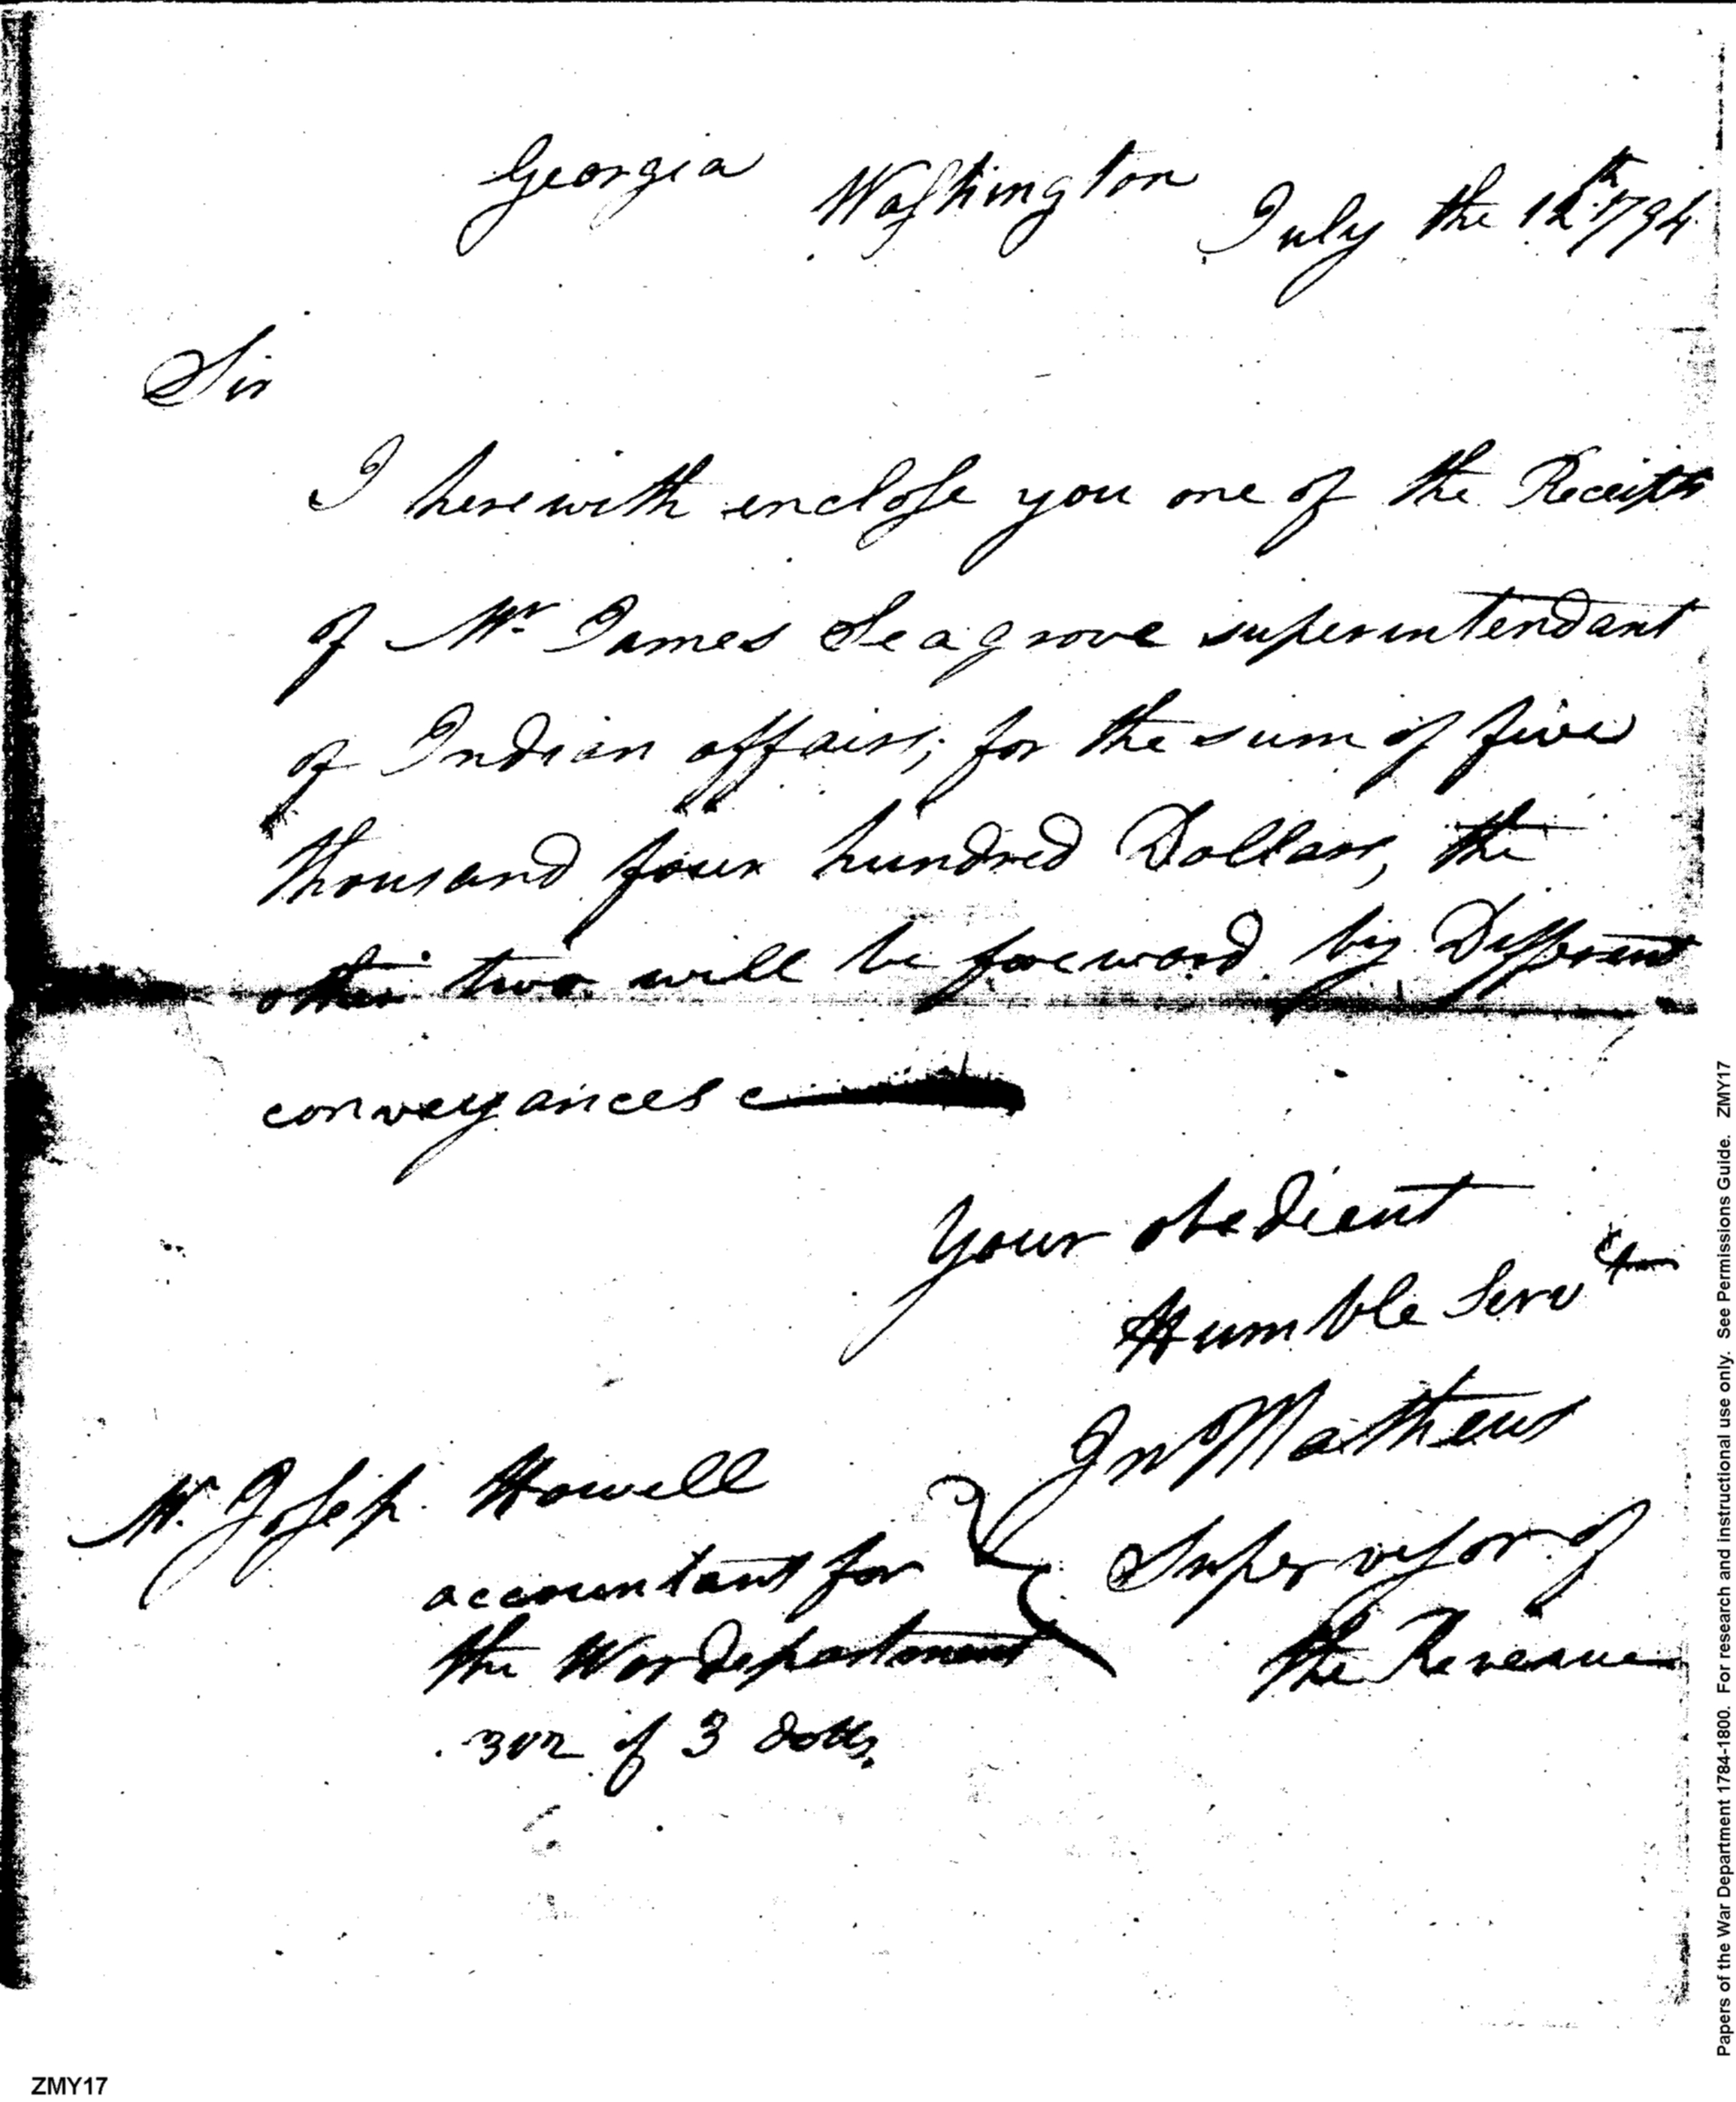 Georgia Washington July the 12th 1794
Sir
I herewith enclose you one of the Receipts
of Mr James Seagrove superintendant
of Indian affairs, for the sum of five
thousand four hundred Dollars, the
other two will be foreward by Different
conveyances
Your obedient
Humble Servt
Jn Mathews
Supervisor of
the Revenue
Mr. Joseph Howell
accountant for
the War department
of 3 dolls
Papers of the War Department 1784-1800. For research and instructional use only. See Permissions Guide. ZMY17
ZMY17